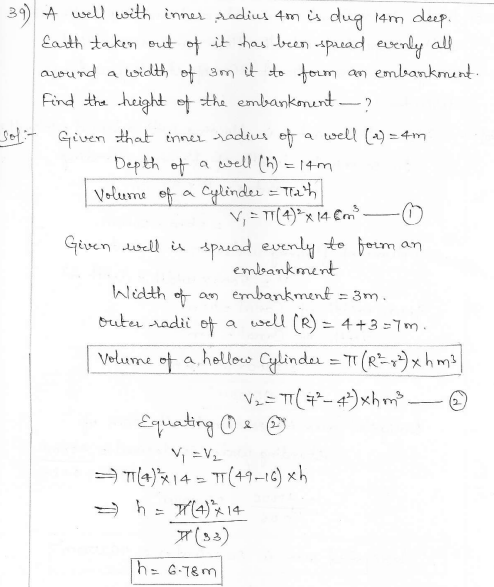 39) A well with inner radius 4m is dug 14m deep.
Earth taken out of it has been spread evenly all
around a width of 3m it to form an embankment.
Find the height of the embankment — ?
Sol:- Given that inner radius of a well (r) = 4m
Depth of a well (h) = 14m
Volume of a Cylinder = πr²h
V₁ = π(4)² × 14 m³ — ①
Given well is spread evenly to form an
embankment
Width of an embankment = 3m.
outer radii of a well (R) = 4+3 = 7m.
Volume of a hollow Cylinder = π(R²-r²) × h m³
V₂ = π(7²-4²) × h m³ — ②
Equating ① & ②
V₁ = V₂
⇒ π(4)² × 14 = π(49-16) × h
⇒ h = π(4)² × 14
π(33)
h = 6.78m